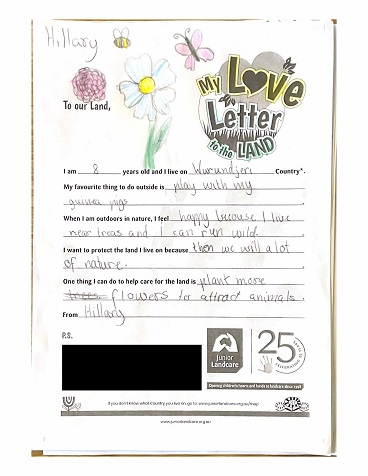 Hillary
My Love
Letter
to the LAND
To our Land,
I am 8 years old and I live on Wurundjeri Country*.
My favourite thing to do outside is play with my
guinea pigs.
When I am outdoors in nature, I feel happy because I live
near treas and I can run wild.
I want to protect the land I live on because then we will a lot
of nature.
One thing I can do to help care for the land is plant more
trees flowers to attract animals.
From Hillary
P.S.
Junior
Landcare
25
Opening children's hearts and hands to landcare since 1998
If you don't know what Country you live on go to: www.juniorlandcare.org.au/map
www.juniorlandcare.org.au